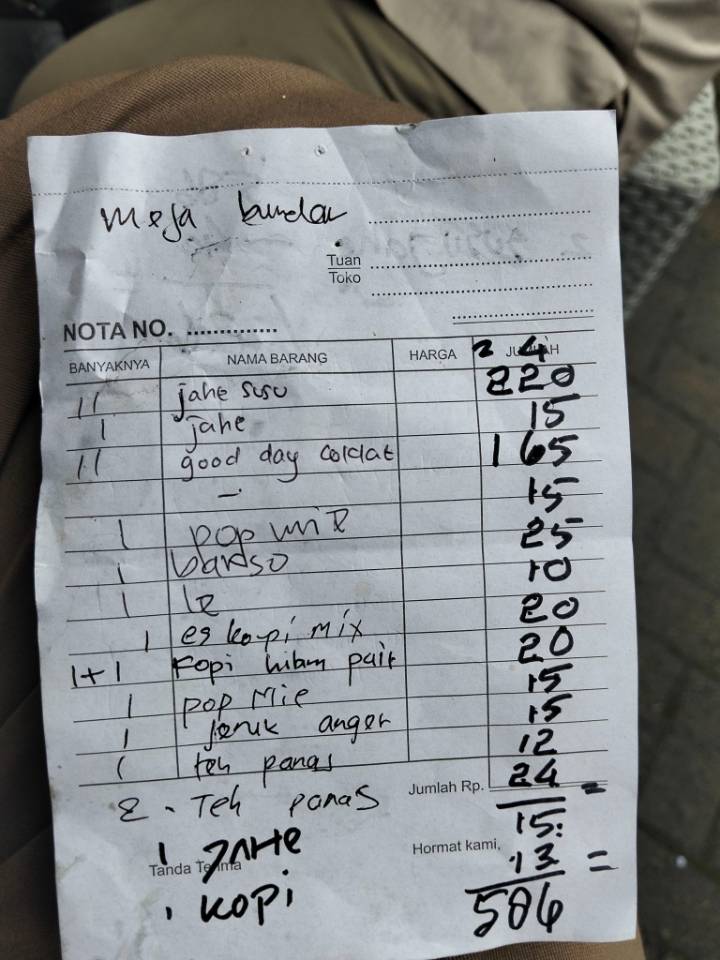 meja bundar
Tuan
Toko
NOTA NO. ..............
BANYAKNYA NAMA BARANG HARGA JUMLAH
2 4
11 jahe susu 220
1 jahe 15
11 good day coklat 165
- 15
1 pop mie 25
1 bakso 10
1 le 20
1 es kopi mix 20
1+1 Kopi hitam pait 15
1 pop Mie 15
1 jeruk anget 12
1 teh panas 24 =
Jumlah Rp.
2 - Teh panas 15.
1 JAHE 13 =
Tanda Terima Hormat kami,
1 KOPI 586